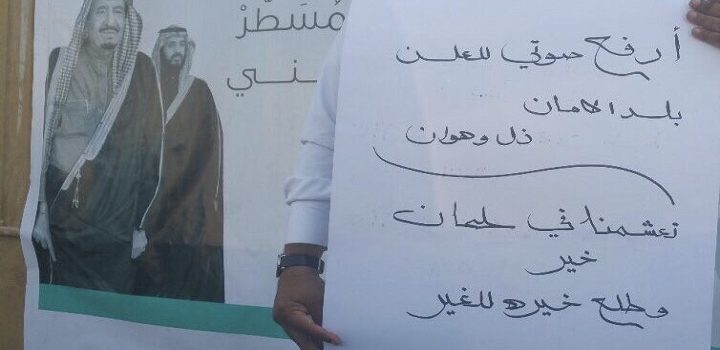 مُسَطَّرْ
ني
أرفع صوتي للعلن
بلد الامان
ذل وهوان
تعشمنا في سلمان
خير
وطلع خيره للغير